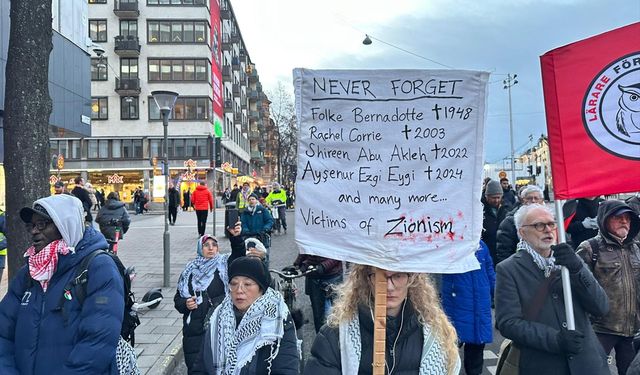 NEVER FORGET
Folke Bernadotte ✝1948
Rachel Corrie ✝2003
Shireen Abu Akleh ✝2022
Ayşenur Ezgi Eygi ✝2024
and many more...
Victims of Zionism
LÄRARE FÖR